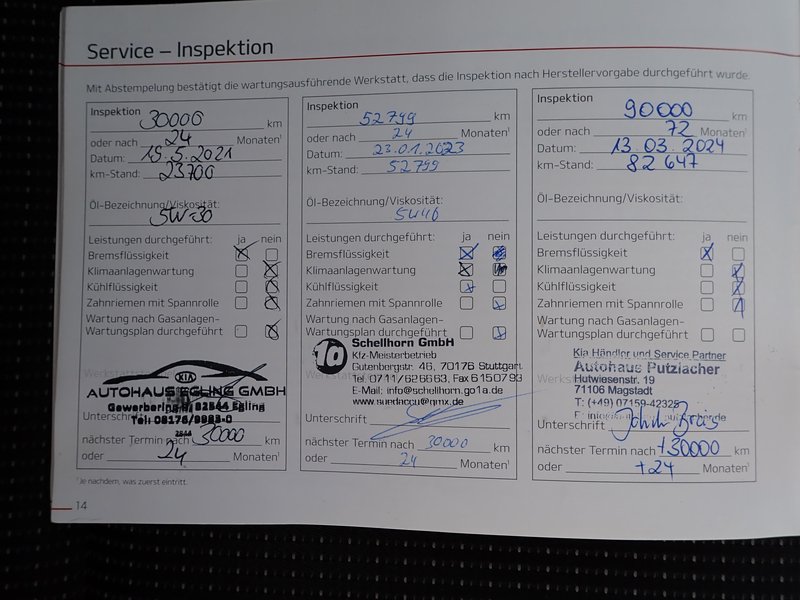 Service – Inspektion
Mit Abstempelung bestätigt die wartungsausführende Werkstatt, dass die Inspektion nach Herstellervorgabe durchgeführt wurde.
Inspektion 30000 km
oder nach 24 Monaten¹
Datum: 19.5.2021
km-Stand: 23700
Öl-Bezeichnung/Viskosität:
5W-30
Leistungen durchgeführt: ja nein
Bremsflüssigkeit
Klimaanlagenwartung
Kühlflüssigkeit
Zahnriemen mit Spannrolle
Wartung nach Gasanlagen-
Wartungsplan durchgeführt
KIA
AUTOHAUS EGLING GMBH
Gewerbering 82544 Egling
Tel: 08176/9983-0
Unterschrift
nächster Termin nach 30000 km
oder 24 Monaten¹
Inspektion 52799 km
oder nach 24 Monaten¹
Datum: 23.01.2023
km-Stand: 52799
Öl-Bezeichnung/Viskosität:
5W40
Leistungen durchgeführt: ja nein
Bremsflüssigkeit
Klimaanlagenwartung
Kühlflüssigkeit
Zahnriemen mit Spannrolle
Wartung nach Gasanlagen-
Wartungsplan durchgeführt
10
Schellhorn GmbH
Kfz-Meisterbetrieb
Gutenbergstr. 46, 70176 Stuttgart
Tel. 0711/626663, Fax 6150793
E-Mail: info@schellhorn.go1a.de
Unterschrift
nächster Termin nach 30000 km
oder 24 Monaten¹
Inspektion 90000 km
oder nach 72 Monaten¹
Datum: 13.03.2024
km-Stand: 82647
Öl-Bezeichnung/Viskosität:
Leistungen durchgeführt: ja nein
Bremsflüssigkeit
Klimaanlagenwartung
Kühlflüssigkeit
Zahnriemen mit Spannrolle
Wartung nach Gasanlagen-
Wartungsplan durchgeführt
Kia Händler und Service Partner
Autohaus Putzlacher
Hutwiesenstr. 19
71106 Magstadt
T: (+49) 07159-42325
Unterschrift
nächster Termin nach +30000 km
oder +24 Monaten¹
¹Je nachdem, was zuerst eintritt.
14